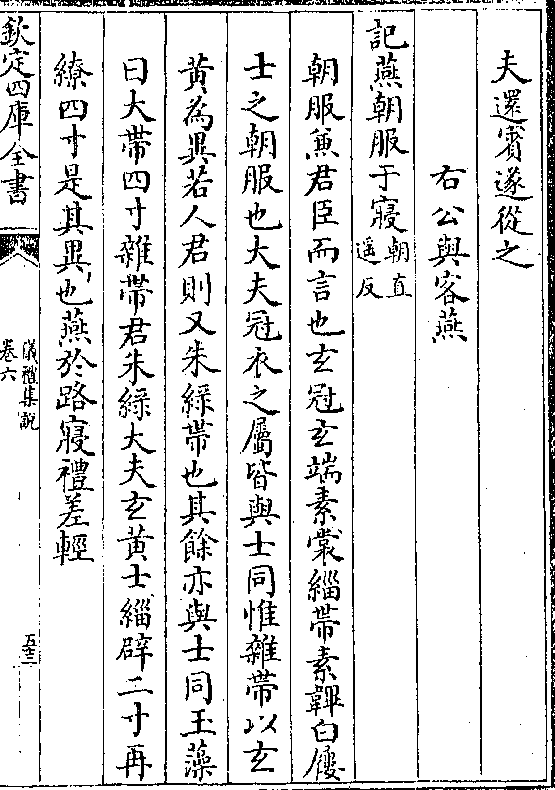 夫還賓遂從之
右公與客燕
記燕朝服于寢朝直遥反
朝服兼君臣而言也玄冠玄端素裳緇帶素韠白屨
士之朝服也大夫冠衣之屬皆與士同惟雜帶以玄
黄為異若人君則又朱緑帶也其餘亦與士同玉藻
曰大帶四寸雜帶君朱緑大夫玄黄士緇辟二寸再
繚四寸是其異也燕於路寢禮差輕
欽定四庫全書
儀禮集說
卷六
五十二